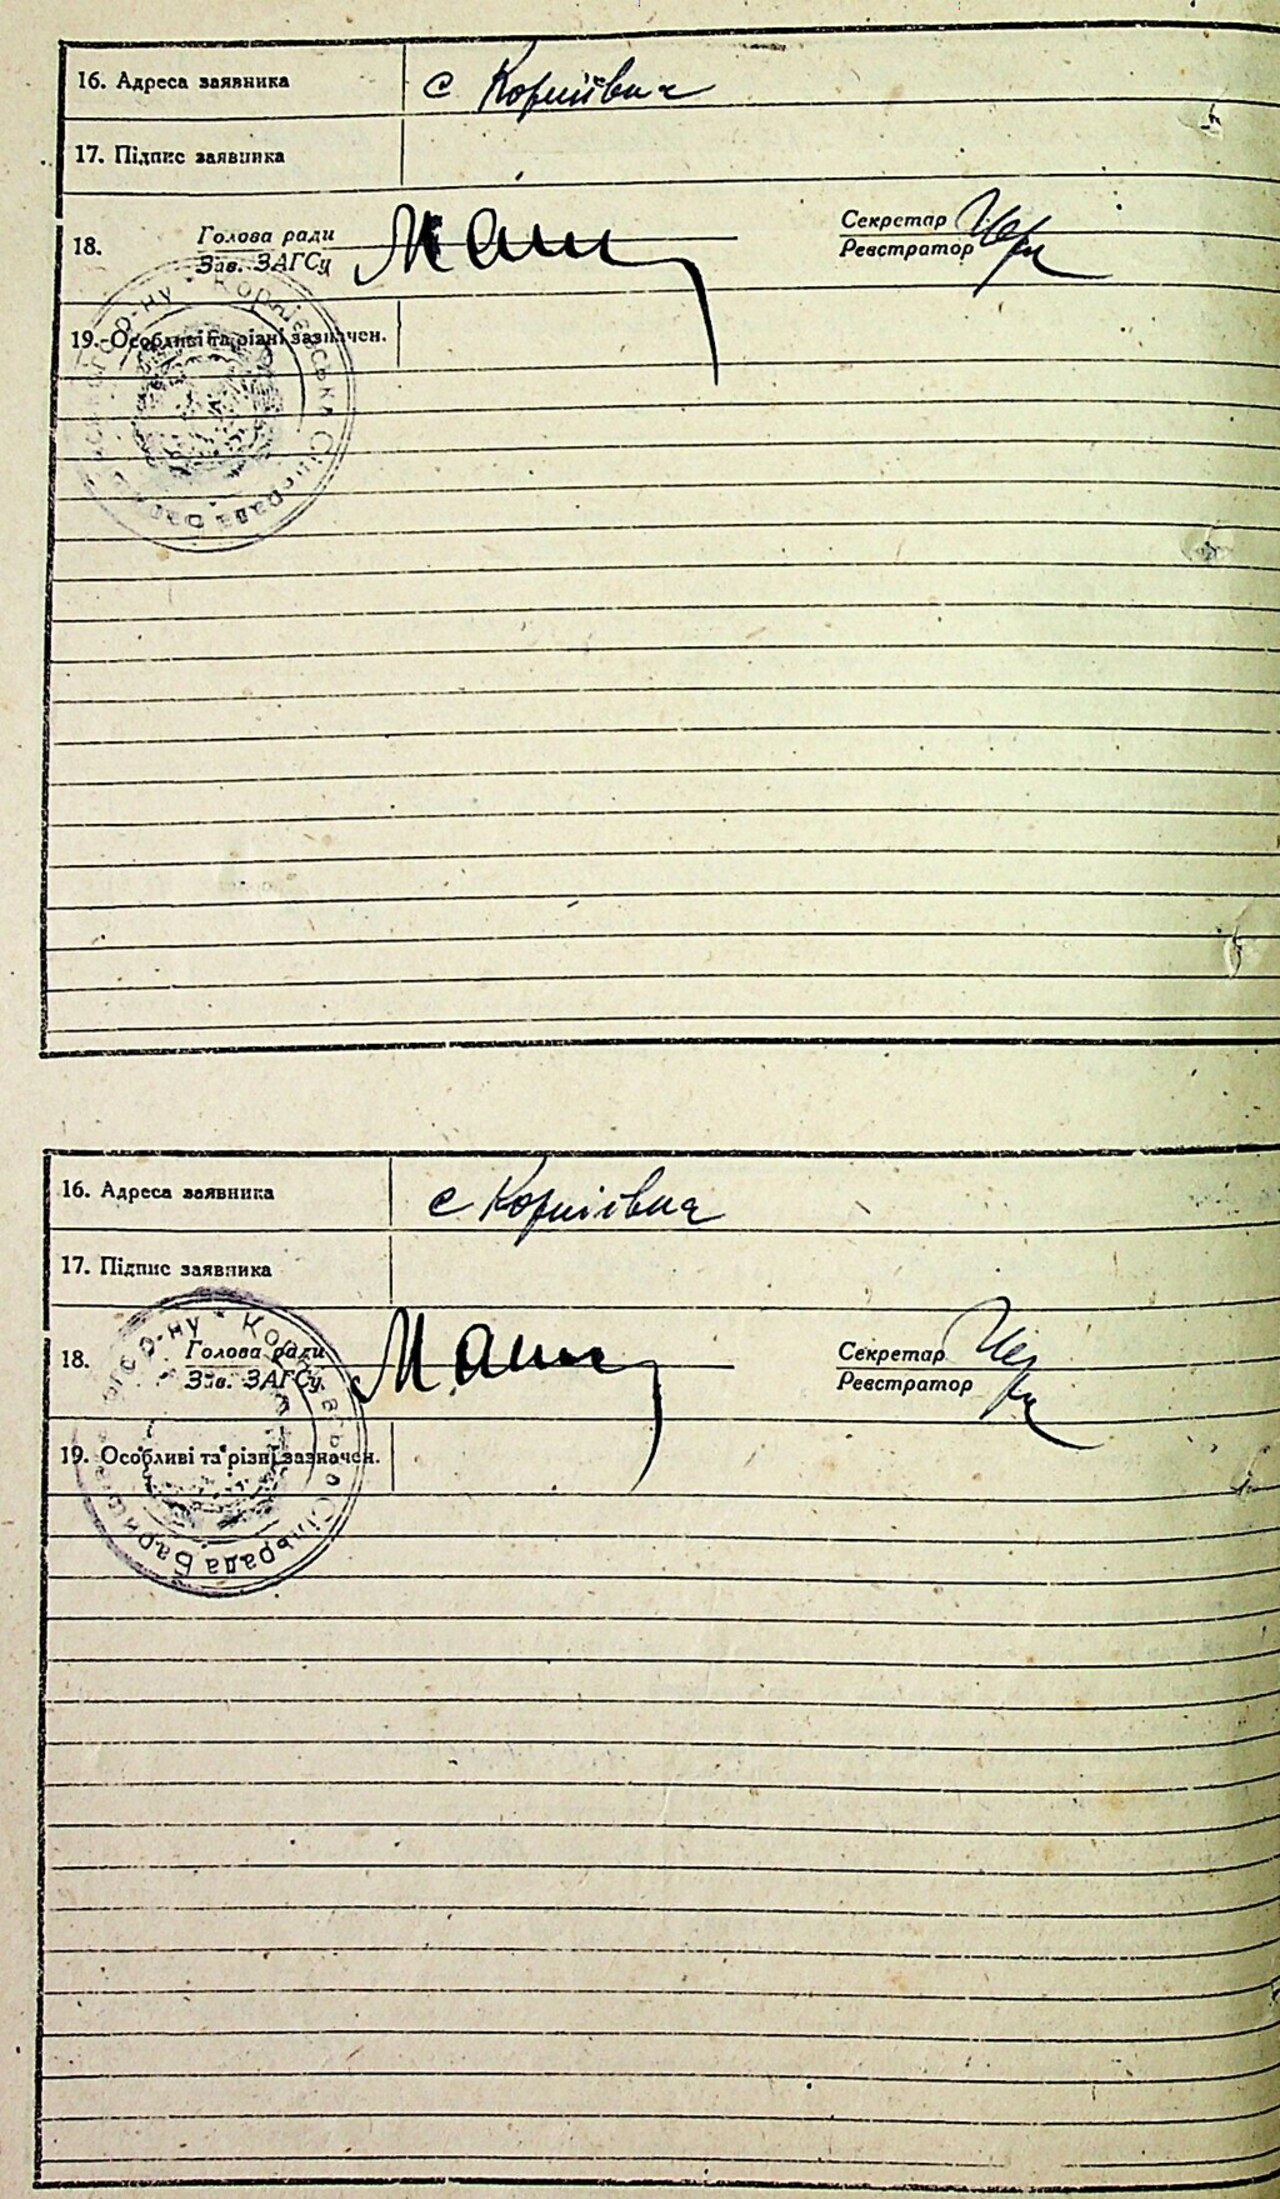 16. Адреса заявника с Корніївка
17. Підпис заявника
18. Голова ради
Зав. ЗАГСу
Секретар
Реєстратор
19. Особливі та різні зазначен.
Корніївська Сільрада
р-ну
16. Адреса заявника с Корніївка
17. Підпис заявника
18. Голова ради
Зав. ЗАГСу
Секретар
Реєстратор
19. Особливі та різні зазначен.
Сільрада
р-ну